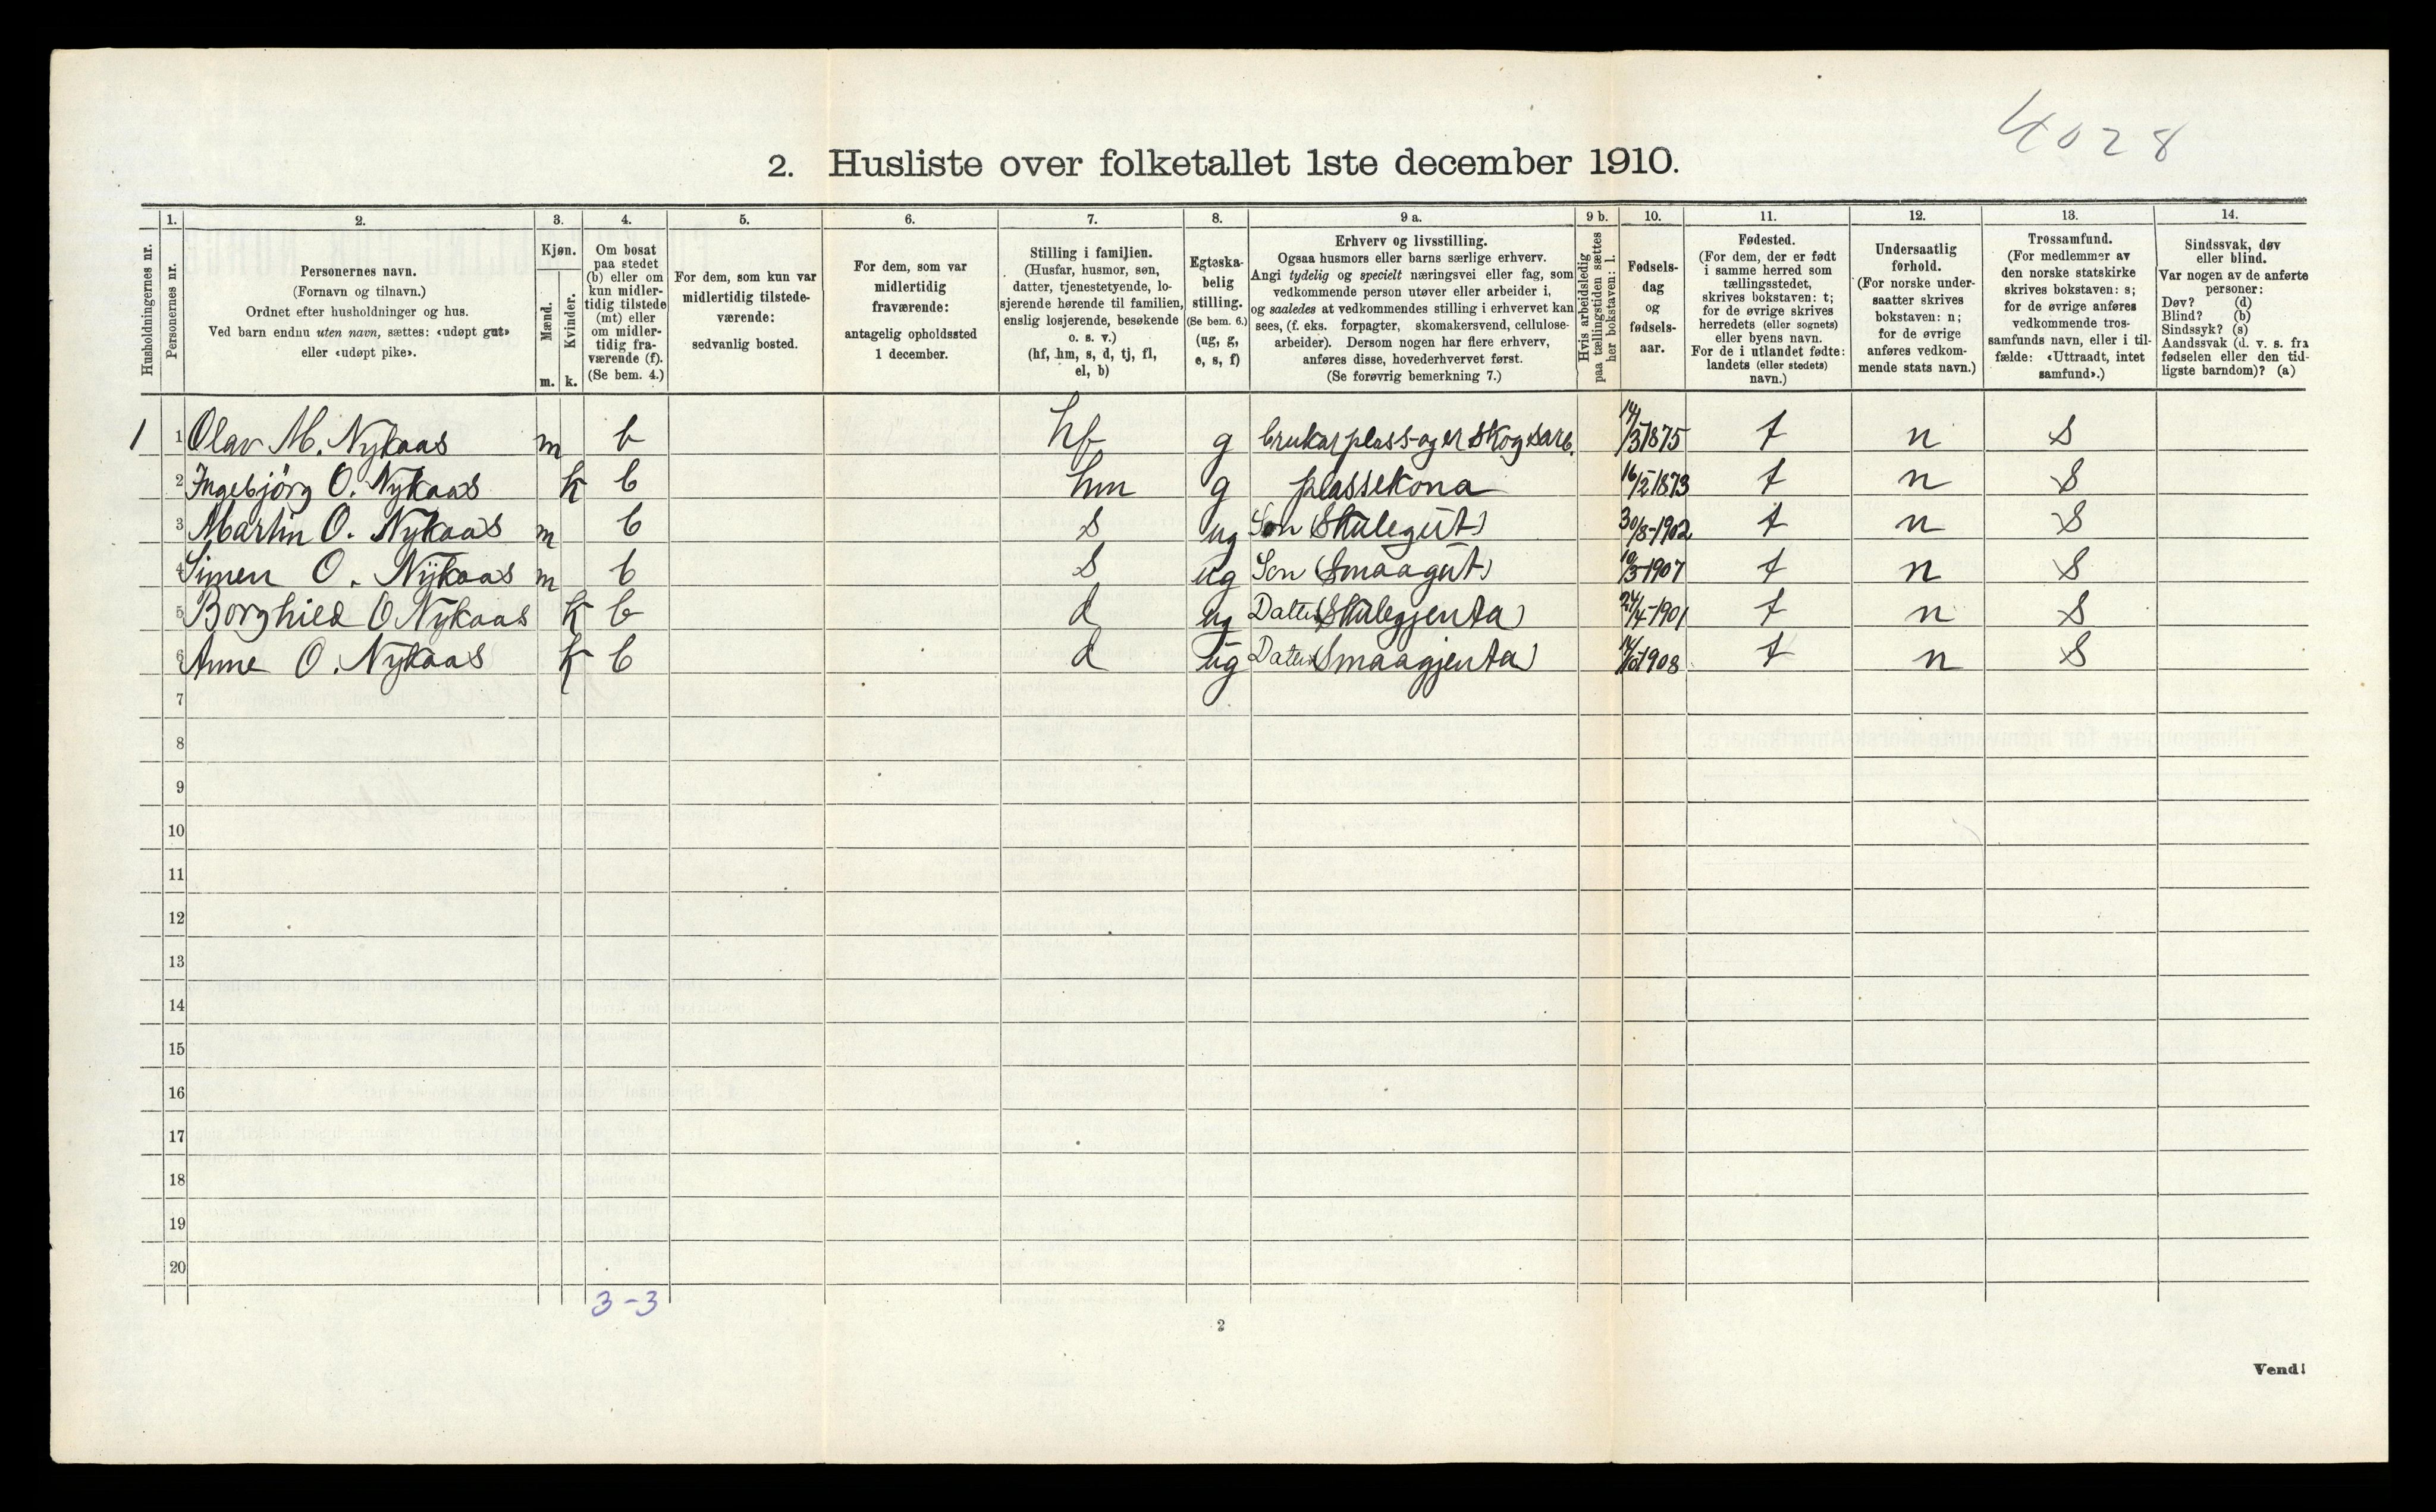 4028
2. Husliste over folketallet 1ste december 1910.
Husholdningernes nr.
1.
Personernes nr.
2.
Personernes navn.
(Fornavn og tilnavn.)
Ordnet efter husholdninger og hus.
Ved barn endnu uten navn, sættes: «udøpt gut»
eller «udøpt pike».
3.
Kjøn.
Mænd.
Kvinder.
m. k.
4.
Om bosat
paa stedet
(b) eller om
kun midler-
tidig tilstede
(mt) eller
om midler-
tidig fra-
værende (f).
(Se bem. 4.)
5.
For dem, som kun var
midlertidig tilstede-
værende:
sedvanlig bosted.
6.
For dem, som var
midlertidig
fraværende:
antagelig opholdssted
1 december.
7.
Stilling i familien.
(Husfar, husmor, søn,
datter, tjenestetyende, lo-
sjerende hørende til familien,
enslig losjerende, besøkende
o. s. v.)
(hf, hm, s, d, tj, fl,
el, b)
8.
Egteska-
belig
stilling.
(Se bem. 6.)
(ug, g,
e, s, f)
9 a.
Erhverv og livsstilling.
Ogsaa husmors eller barns særlige erhverv.
Angi tydelig og specielt næringsvei eller fag, som
vedkommende person utøver eller arbeider i,
og saaledes at vedkommendes stilling i erhvervet kan
sees, (f. eks. forpagter, skomakersvend, cellulose-
arbeider). Dersom nogen har flere erhverv,
anføres disse, hovederhvervet først.
(Se forøvrig bemerkning 7.)
9 b.
Hvis arbeidsledig
paa tællingstiden sættes
her bokstaven: l.
10.
Fødsels-
dag
og
fødsels-
aar.
11.
Fødested.
(For dem, der er født
i samme herred som
tællingsstedet,
skrives bokstaven: t;
for de øvrige skrives
herredets (eller sognets)
eller byens navn.
For de i utlandet fødte:
landets (eller stedets)
navn.)
12.
Undersaatlig
forhold.
(For norske under-
saatter skrives
bokstaven: n;
for de øvrige
anføres vedkom-
mende stats navn.)
13.
Trossamfund.
(For medlemmer av
den norske statskirke
skrives bokstaven: s;
for de øvrige anføres
vedkommende tros-
samfunds navn, eller i til-
fælde: «Uttraadt, intet
samfund».)
14.
Sindssvak, døv
eller blind.
Var nogen av de anførte
personer:
Døv? (d)
Blind? (b)
Sindssyk? (s)
Aandssvak (d. v. s. fra
fødselen eller den tid-
ligste barndom)? (a)
1 1 Olav M. Nykaas m b hf g brukar plass og er skogsarb. 14/3 1875 t n s
2 Ingebjörg O. Nykaas k b hm g plassekona 16/2 1873 t n s
3 Martin O. Nykaas m b s ug Son (Skulegut) 30/8-1902 t n s
4 Simen O. Nykaas m b s ug Son (Smaagut) 10/3-1907 t n s
5 Borghild O Nykaas k b d ug Datter (Skulegjenta) 24/4-1901 t n s
6 Anne O. Nykaas k b d ug Datter (Smaagjenta) 1908 t n s
7
8
9
10
11
12
13
14
15
16
17
18
19
20
3-3
2
Vend!